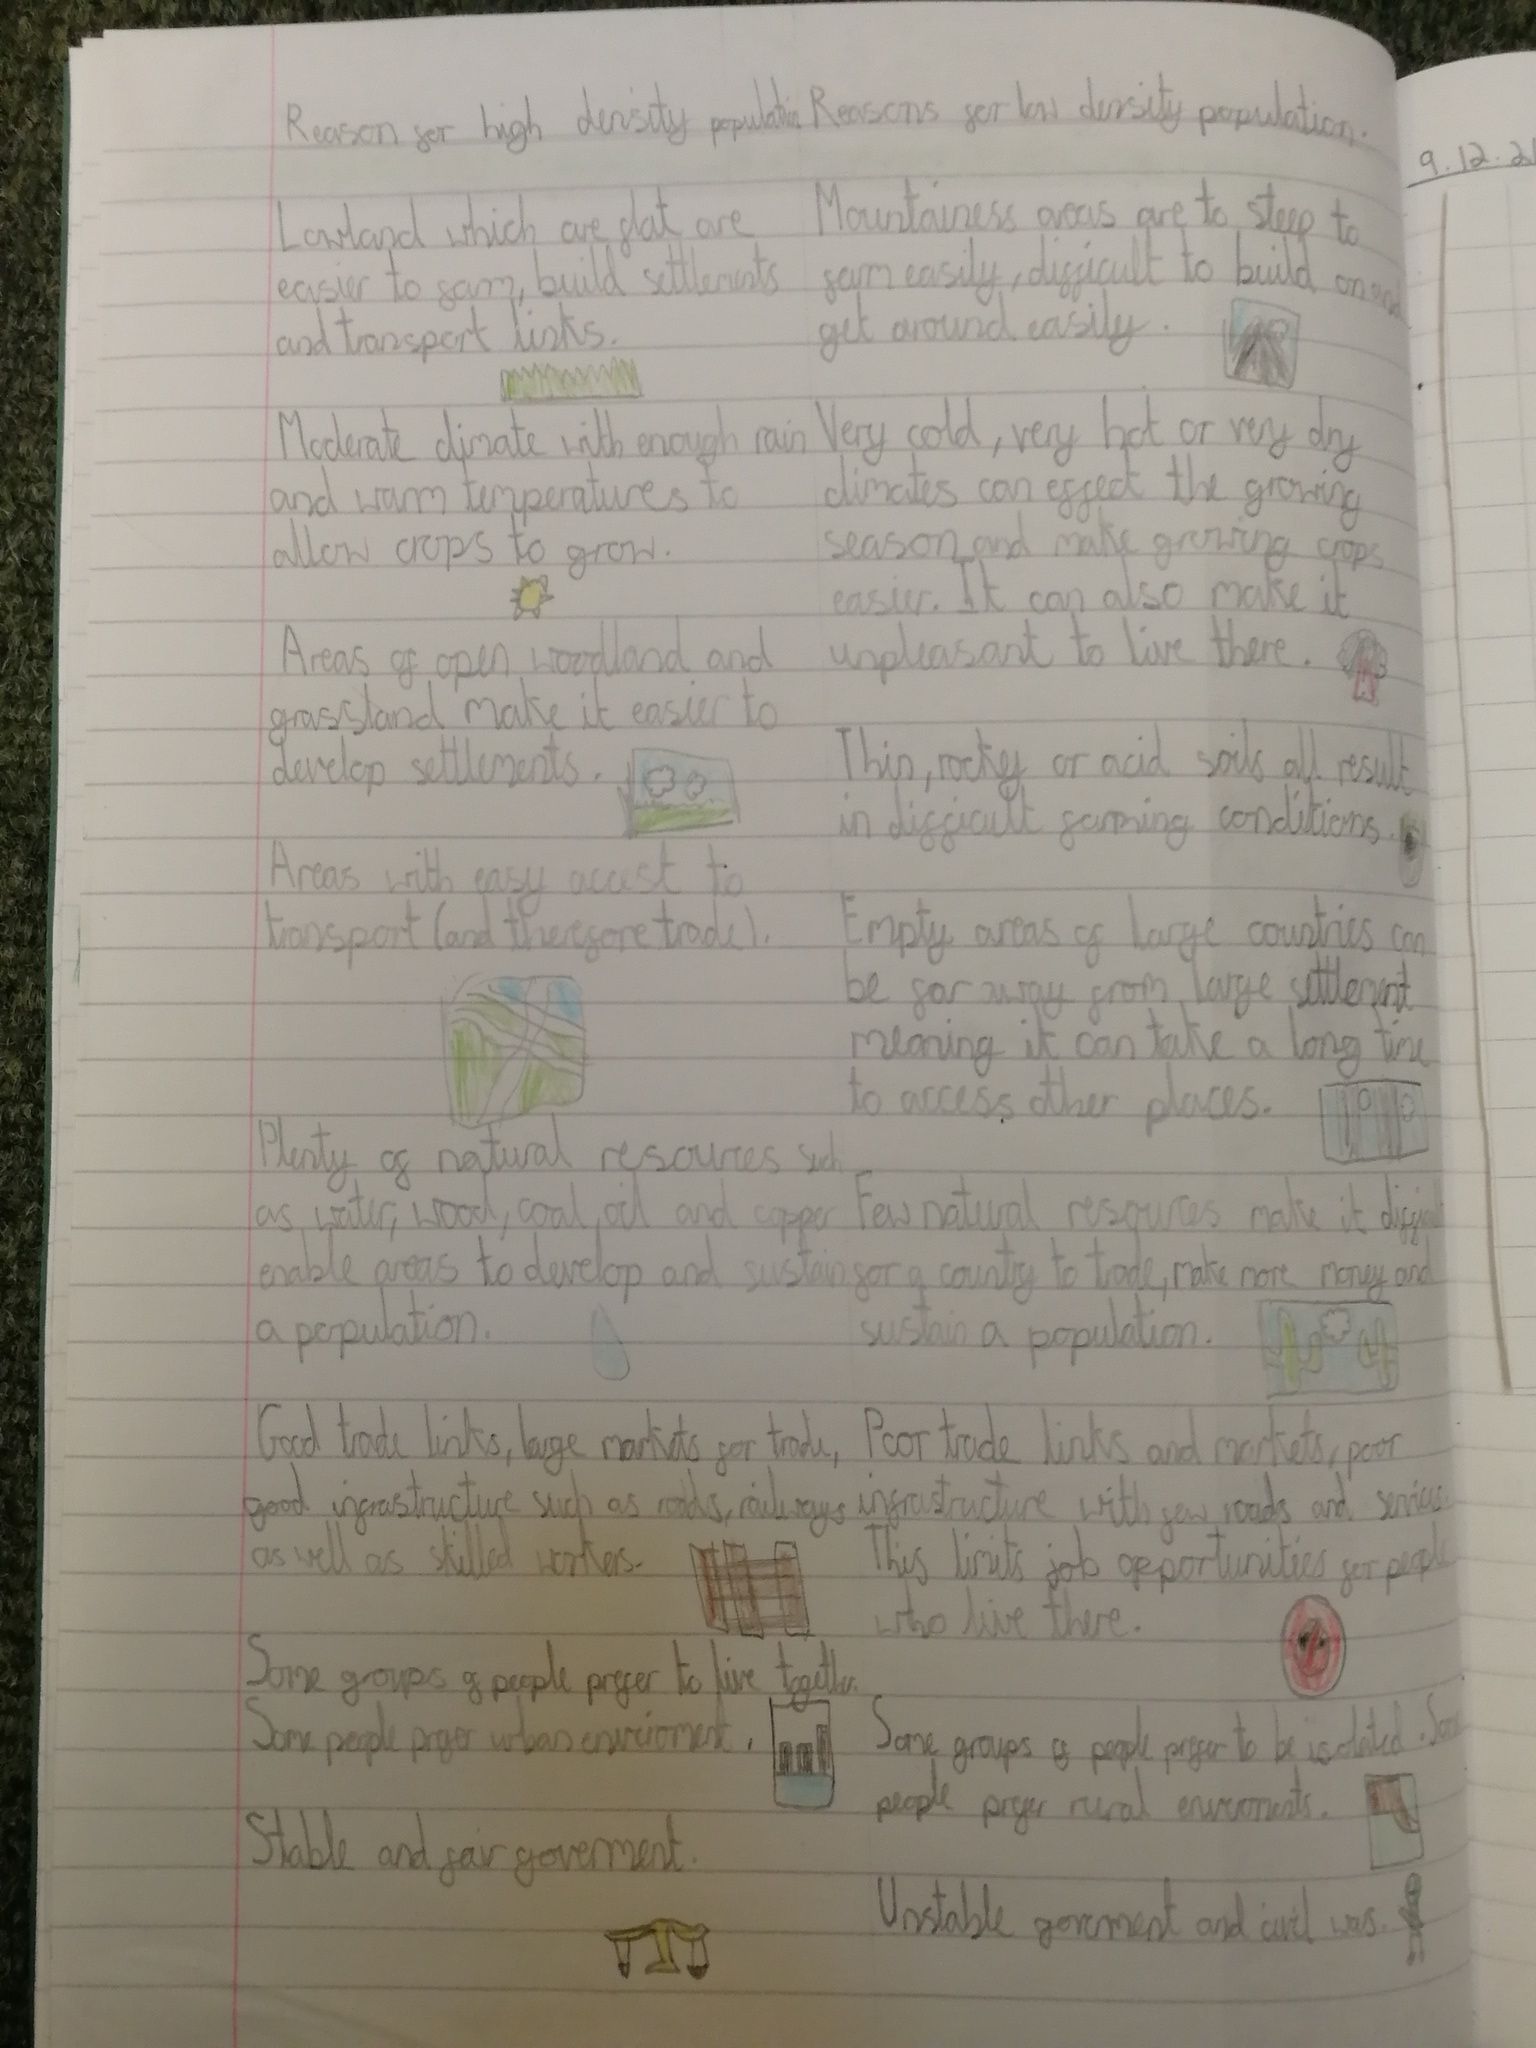 Reason for high density population
Lowland which are flat are
easier to farm, build settlements
and transport links.
Moderate climate with enough rain
and warm temperatures to
allow crops to grow.
Areas of open woodland and
grassland make it easier to
develop settlements.
Areas with easy accest to
transport (and therefore trade).
Plenty of natural resources such
as water, wood, coal, oil and copper
enable areas to develop and sustain
a population.
Good trade links, large markets for trade,
good infrastructure such as roads, railways
as well as skilled workers.
Some groups of people prefer to live together.
Some people prefer urban enviroment.
Stable and fair goverment.
Reasons for low density population.
Mountainess areas are to steep to
farm easily, difficult to build on and
get around easily.
Very cold, very hot or very dry
climates can effect the growing
season and make growing crops
easier. It can also make it
unpleasant to live there.
Thin, rocky or acid soils all result
in difficult farming conditions.
Empty areas of large countries can
be far away from large settlement
meaning it can take a long time
to access other places.
Few natural resources make it difficult
for a country to trade, make more money and
sustain a population.
Poor trade links and markets, poor
infrastructure with few roads and services.
This limits job opportunities for people
who live there.
Some groups of people prefer to be isolated. Some
people prefer rural enviroments.
Unstable goverment and civil was.
9.12.